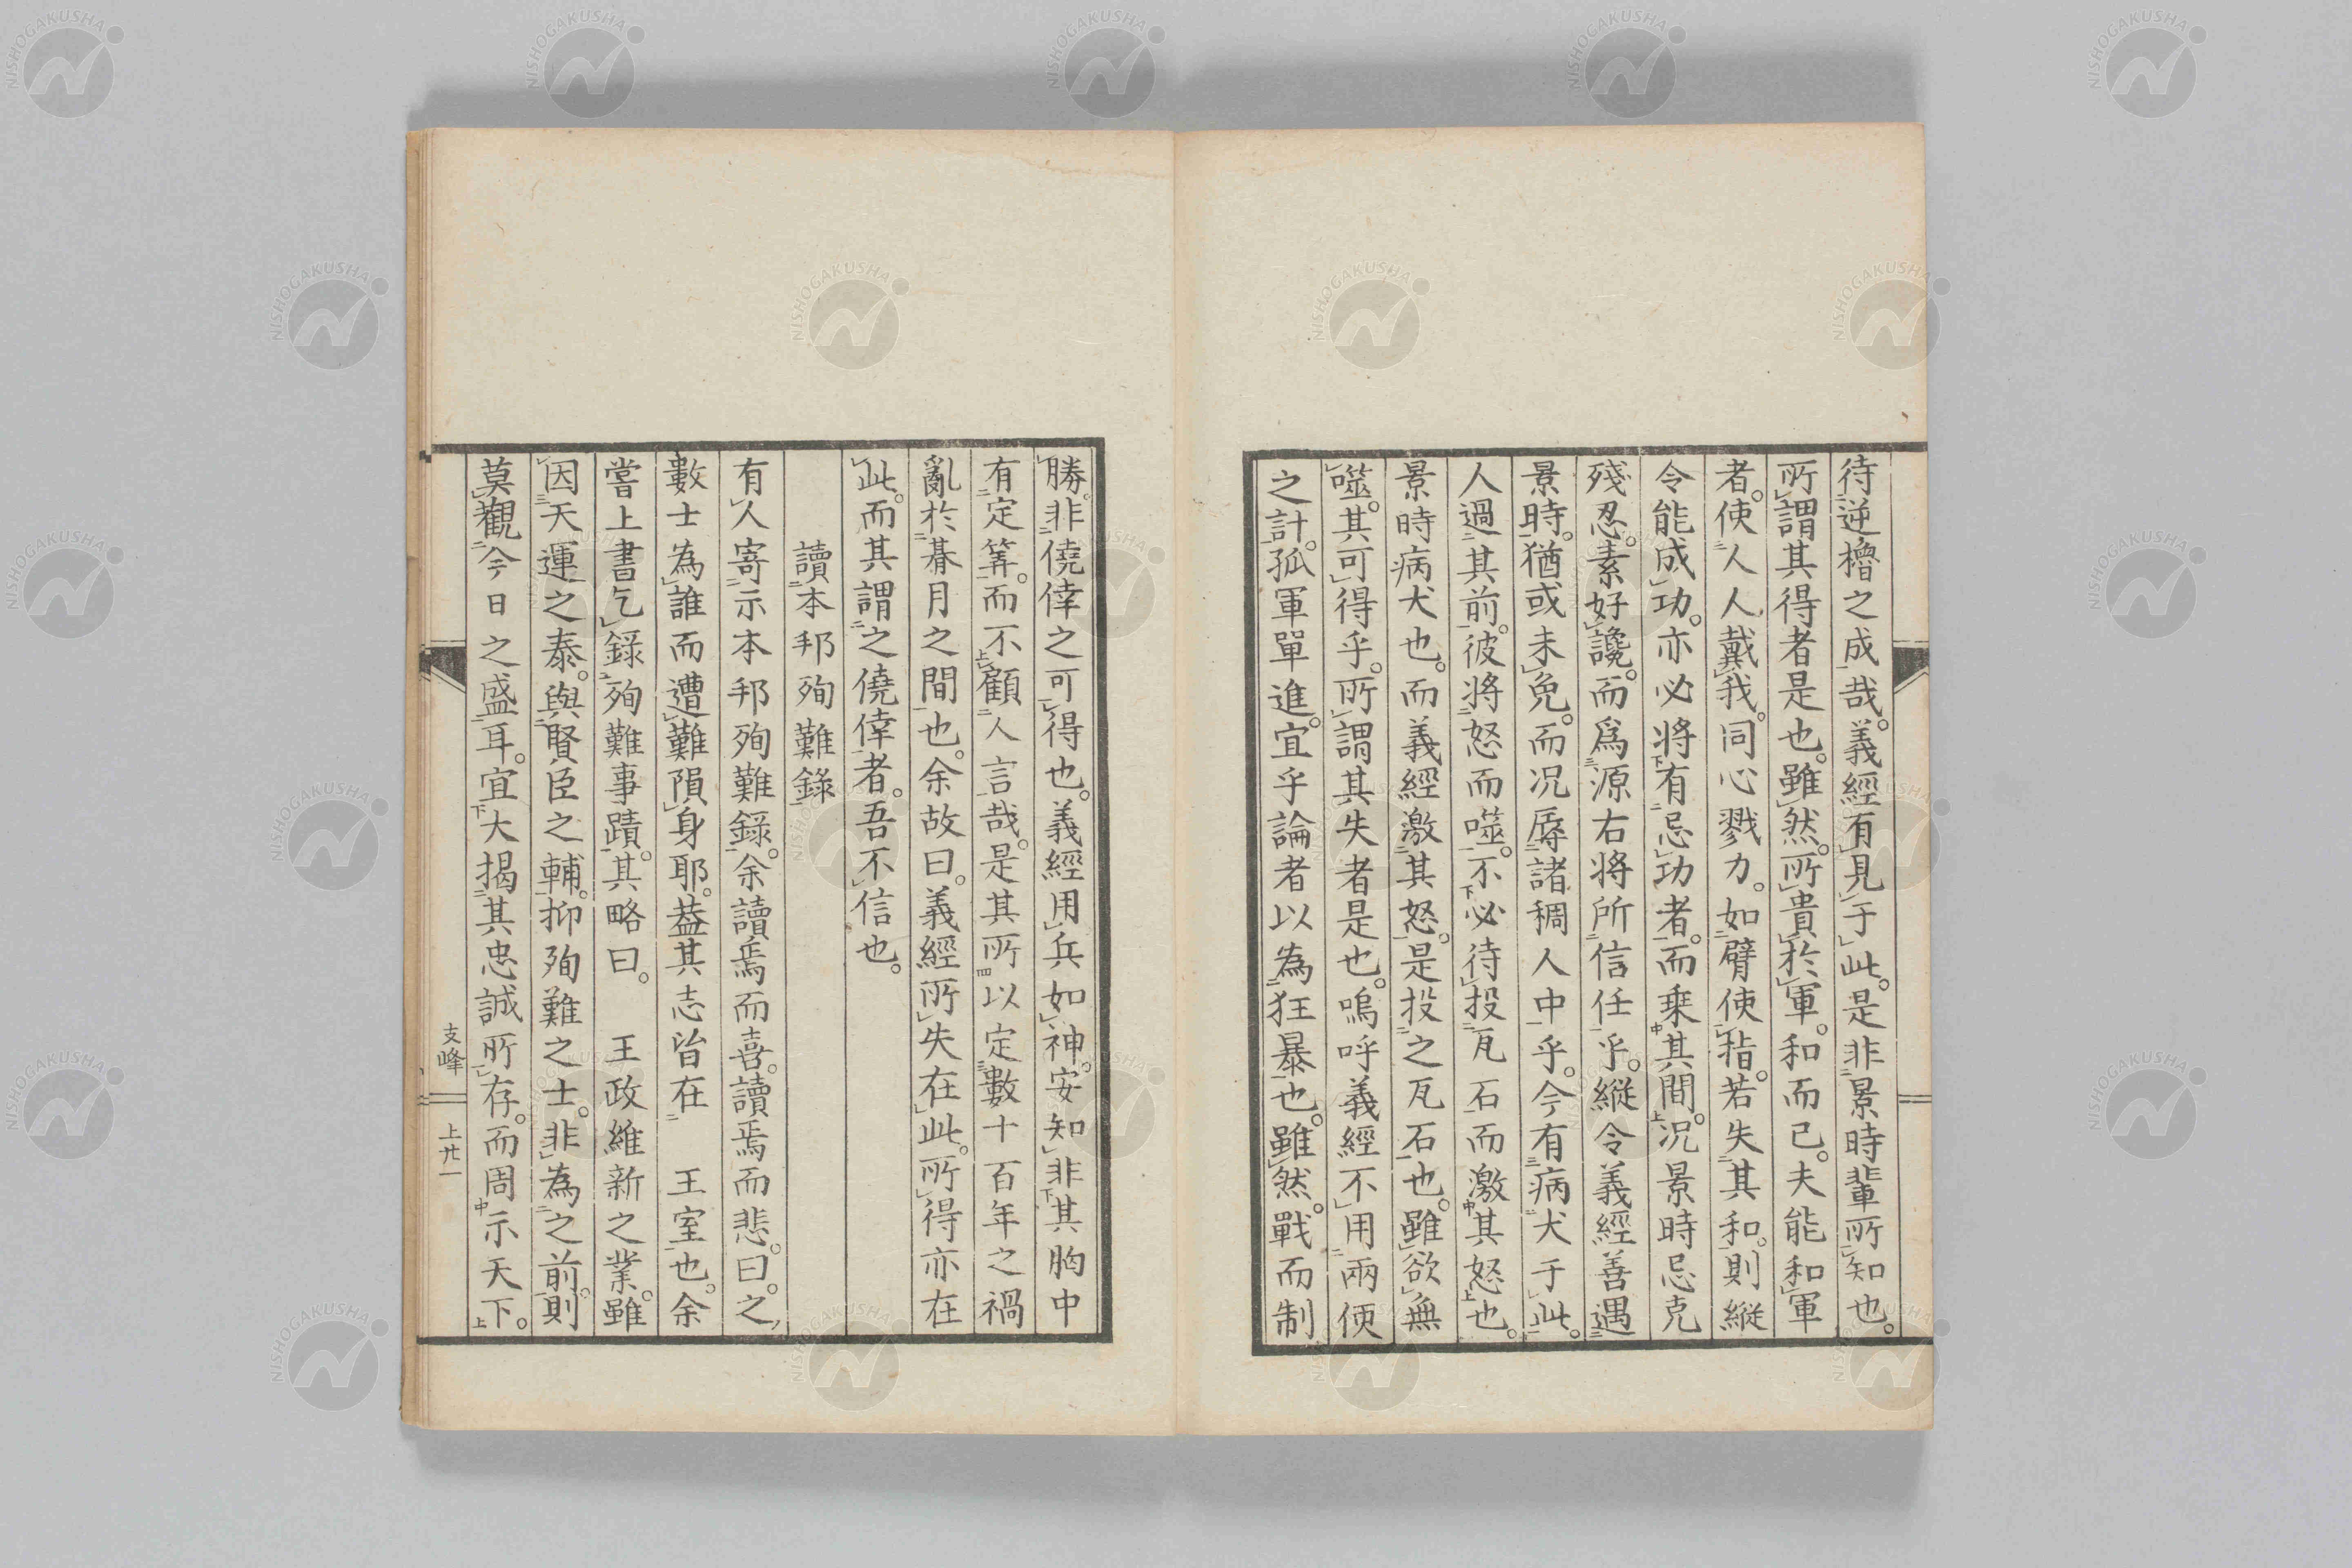 待逆櫓之成哉。義經有見于此。是非景時輩所知也。
所謂其得者是也。雖然。所貴於軍。和而已。夫能和軍
者。使人人戴我。同心戮力。如臂使指。若失其和。則縱
令能成功。亦必將有忌功者。而乗其間。况景時忌克
殘忍。素好讒。而爲源右將所信任乎。縱令義經善遇
景時。猶或未免。而况辱諸稠人中乎。今有病犬于此。
人過其前。彼將怒而噬。不必待投瓦石而激其怒也。
景時病犬也。而義經激其怒。是投之瓦石也。雖欲無
噬。其可得乎。所謂其失者是也。嗚呼義經不用兩便
之計。孤軍單進。宜乎論者以為狂暴也。雖然。戰而制
勝。非僥倖之可得也。義經用兵如神。安知非其胸中
有定筭。而不顧人言哉。是其所以定數十百年之禍
亂於朞月之間也。余故曰。義經所失在此。所得亦在
此。而其謂之僥倖者。吾不信也。
讀本邦殉難錄
有人寄示本邦殉難錄。余讀焉而喜。讀焉而悲。曰。之
數士為誰而遭難隕身耶。葢其志皆在　王室也。余
嘗上書乞錄殉難事蹟。其略曰。　王政維新之業。雖
因天運之泰。與賢臣之輔。抑殉難之士。非為之前。則
莫觀今日之盛耳。宜大揭其忠誠所存。而周示天下。
支峰　上廿一
NISHOGAKUSHA